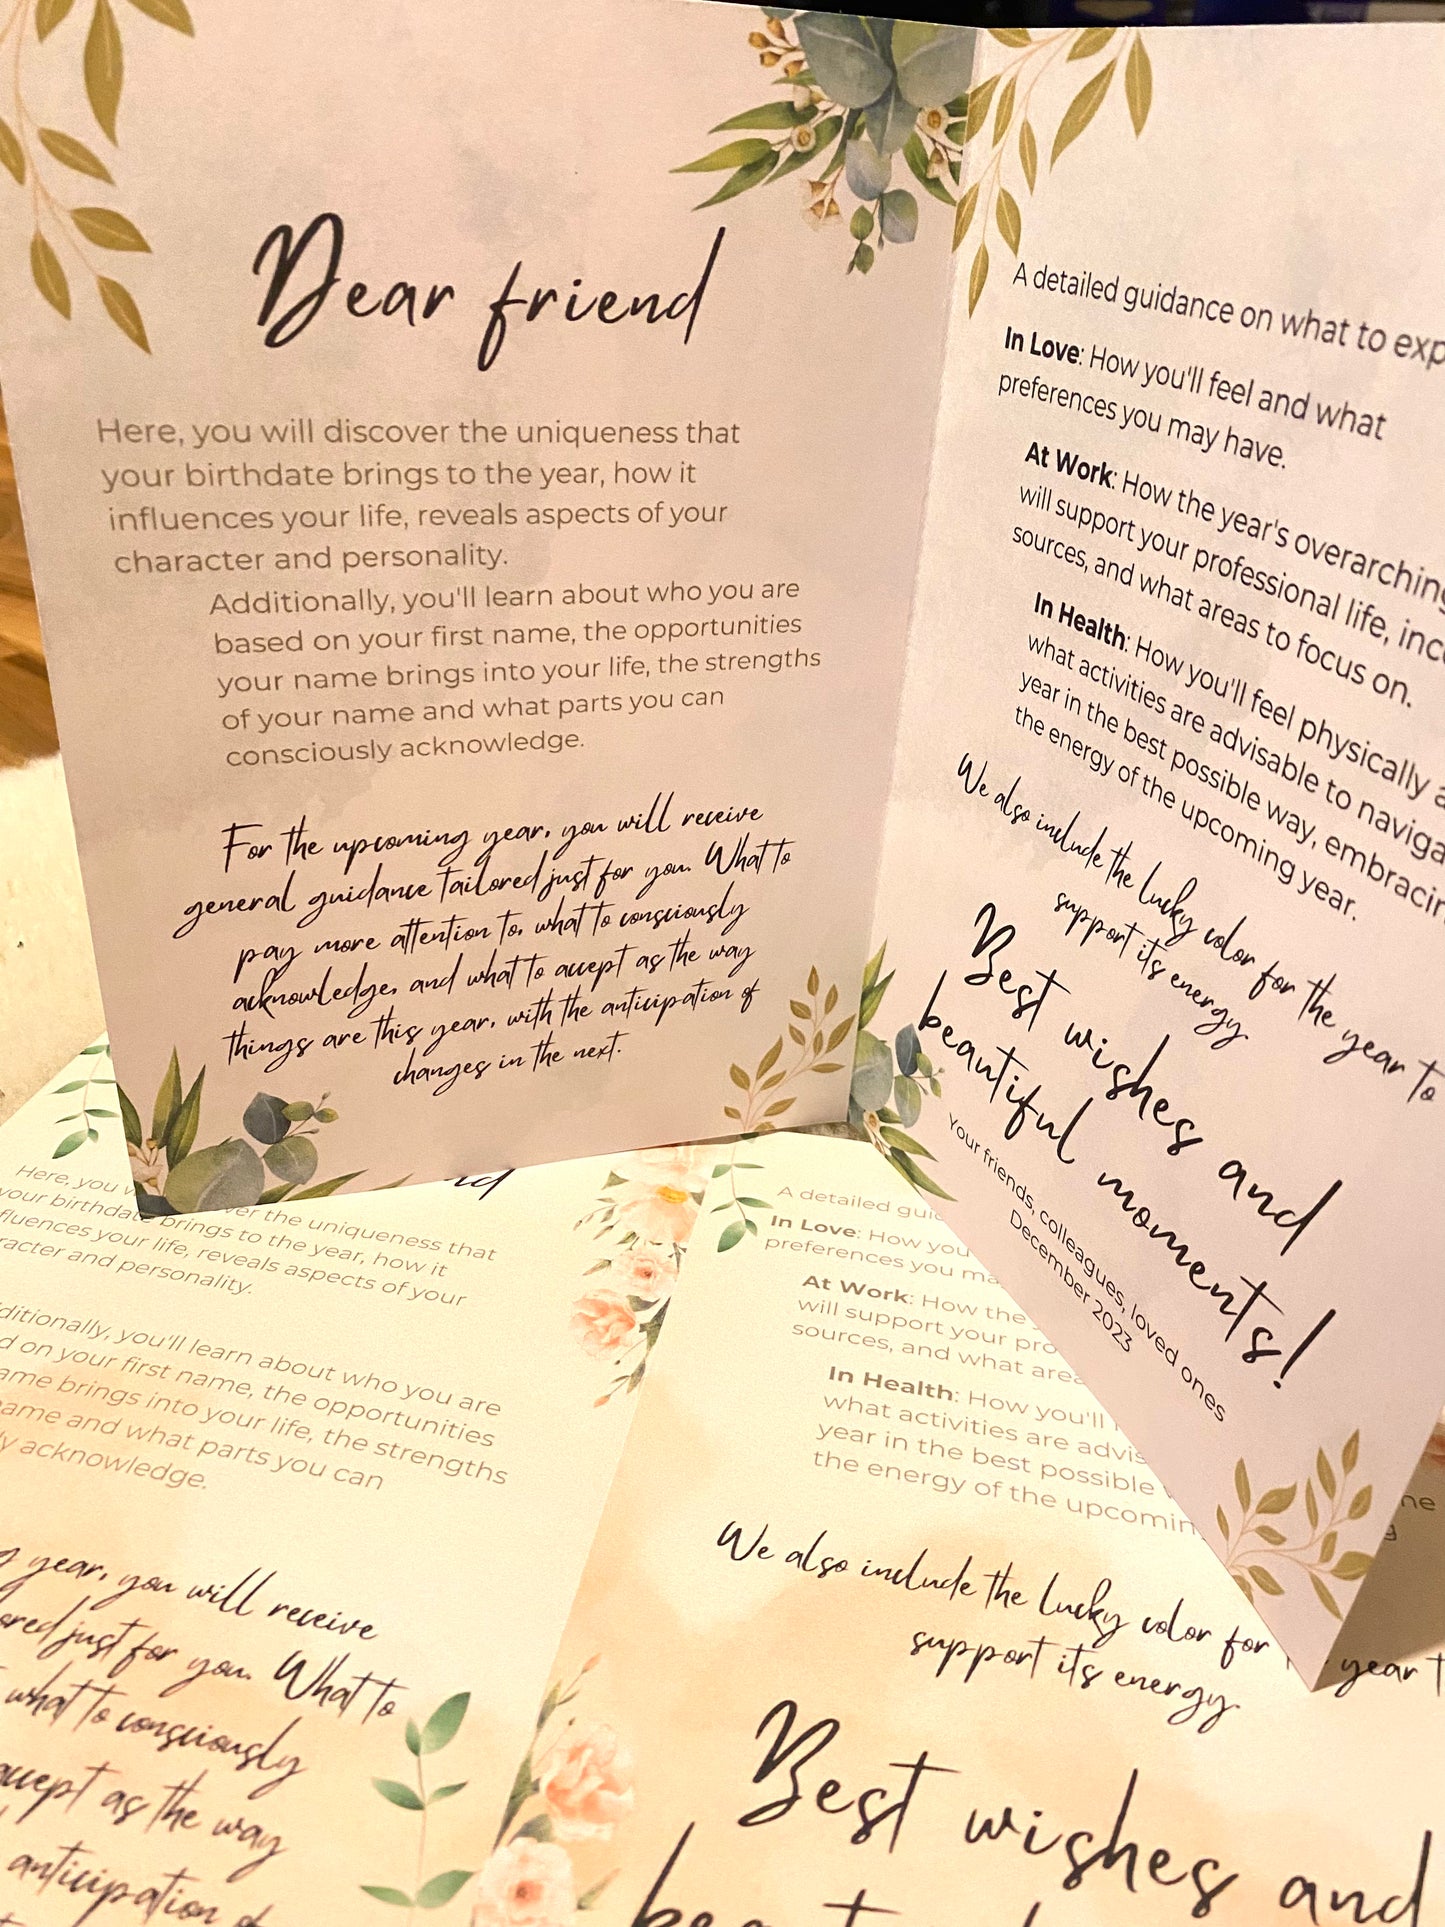 Dear friend
Here, you will discover the uniqueness that
your birthdate brings to the year, how it
influences your life, reveals aspects of your
character and personality.
Additionally, you'll learn about who you are
based on your first name, the opportunities
your name brings into your life, the strengths
of your name and what parts you can
consciously acknowledge.
For the upcoming year, you will receive
general guidance tailored just for you. What to
pay more attention to, what to consciously
acknowledge, and what to accept as the way
things are this year, with the anticipation of
changes in the next.
A detailed guidance on what to
In Love: How you'll feel and what
preferences you may have.
At Work: How the year's overarching
will support your professional life,
sources, and what areas to focus on.
In Health: How you'll feel physically
what activities are advisable to
year in the best possible way,
the energy of the upcoming year.
We also include the lucky color for the year to
support its energy.
Best wishes and
beautiful moments!
Your friends, colleagues, loved ones
December 2023
Here, you
your birthdate brings to the year, how it
the uniqueness that
your life, reveals aspects of your
and personality.
you'll learn about who you are
on your first name, the opportunities
brings into your life, the strengths
and what parts you can
acknowledge.
year, you will receive
just for you. What to
what to consciously
as the way
anticipation of
A detailed
In Love: How you
preferences you
At Work: How the
will support your
sources, and what
In Health: How you'll
what activities are
year in the best possible
the energy of the
We also include the lucky color for
year
support its energy.
Best wishes and